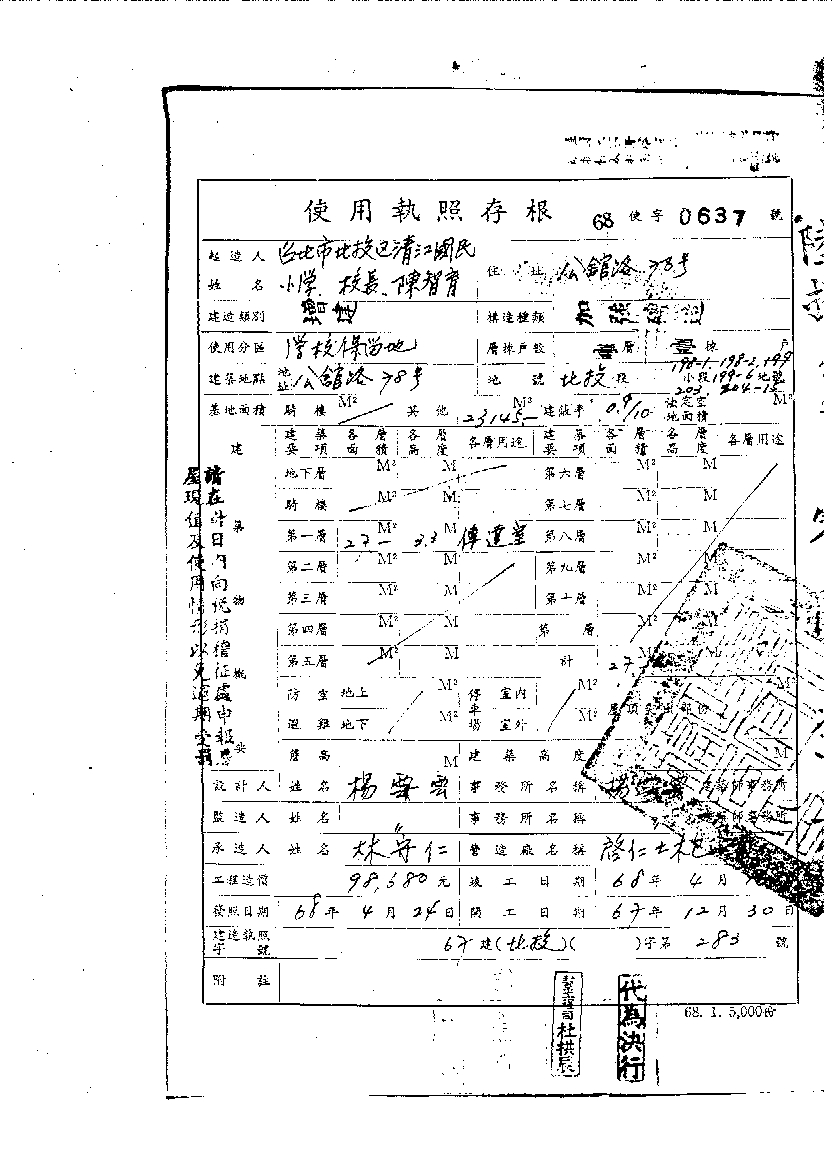 使用執照存根 68 使字 0637 號
起造人 台北市北投區清江國民
姓名 小学 校長 陳智育 住址 公館路78号
建造類別 增建 構造種類 加強磚造
使用分區 学校保留地 層棟戶數 壹層 壹棟 戶
建築地點 地址 公館路78号 地號 北投段 小段 198-1. 198-2, 199 199-6 地號 203 204-15
基地面積 騎樓 M² 其他 23145.- M² 建蔽率 0.9/10 法定空地面積 M²
建築要項 各層面積 各層高度 各層用途 建築要項 各層面積 各層高度 各層用途
建築物概要
地下層 M² M 第六層 M² M
騎樓 M² M 第七層 M² M
第一層 27- M² 3.3 M 傳達室 第八層 M² M
第二層 M² M 第九層 M² M
第三層 M² M 第十層 M² M
第四層 M² M 第 層 M² M
第五層 M² M 計 27.- M² M
防空 地上 M² 停車場 室內 M² M²
避難 地下 M² 室外 M² 屋頂突出部份
簷高 M 建築高度 M
設計人 姓名 楊雪雲 事務所名稱 建築師事務所
監造人 姓名 〃 事務所名稱 建築師事務所
承造人 姓名 林守仁 營造廠名稱 啓仁土木
工程造價 98,680元 竣工日期 68年 4月
發照日期 68年 4月 24日 開工日期 67年 12月 30日
建造執照字號 67建(北投)( )字第 283 號
附註
請在 日內向稅捐稽征處申報房
屋現值及使用情形以免逾期受罰
代為決行
68. 1. 5,000份